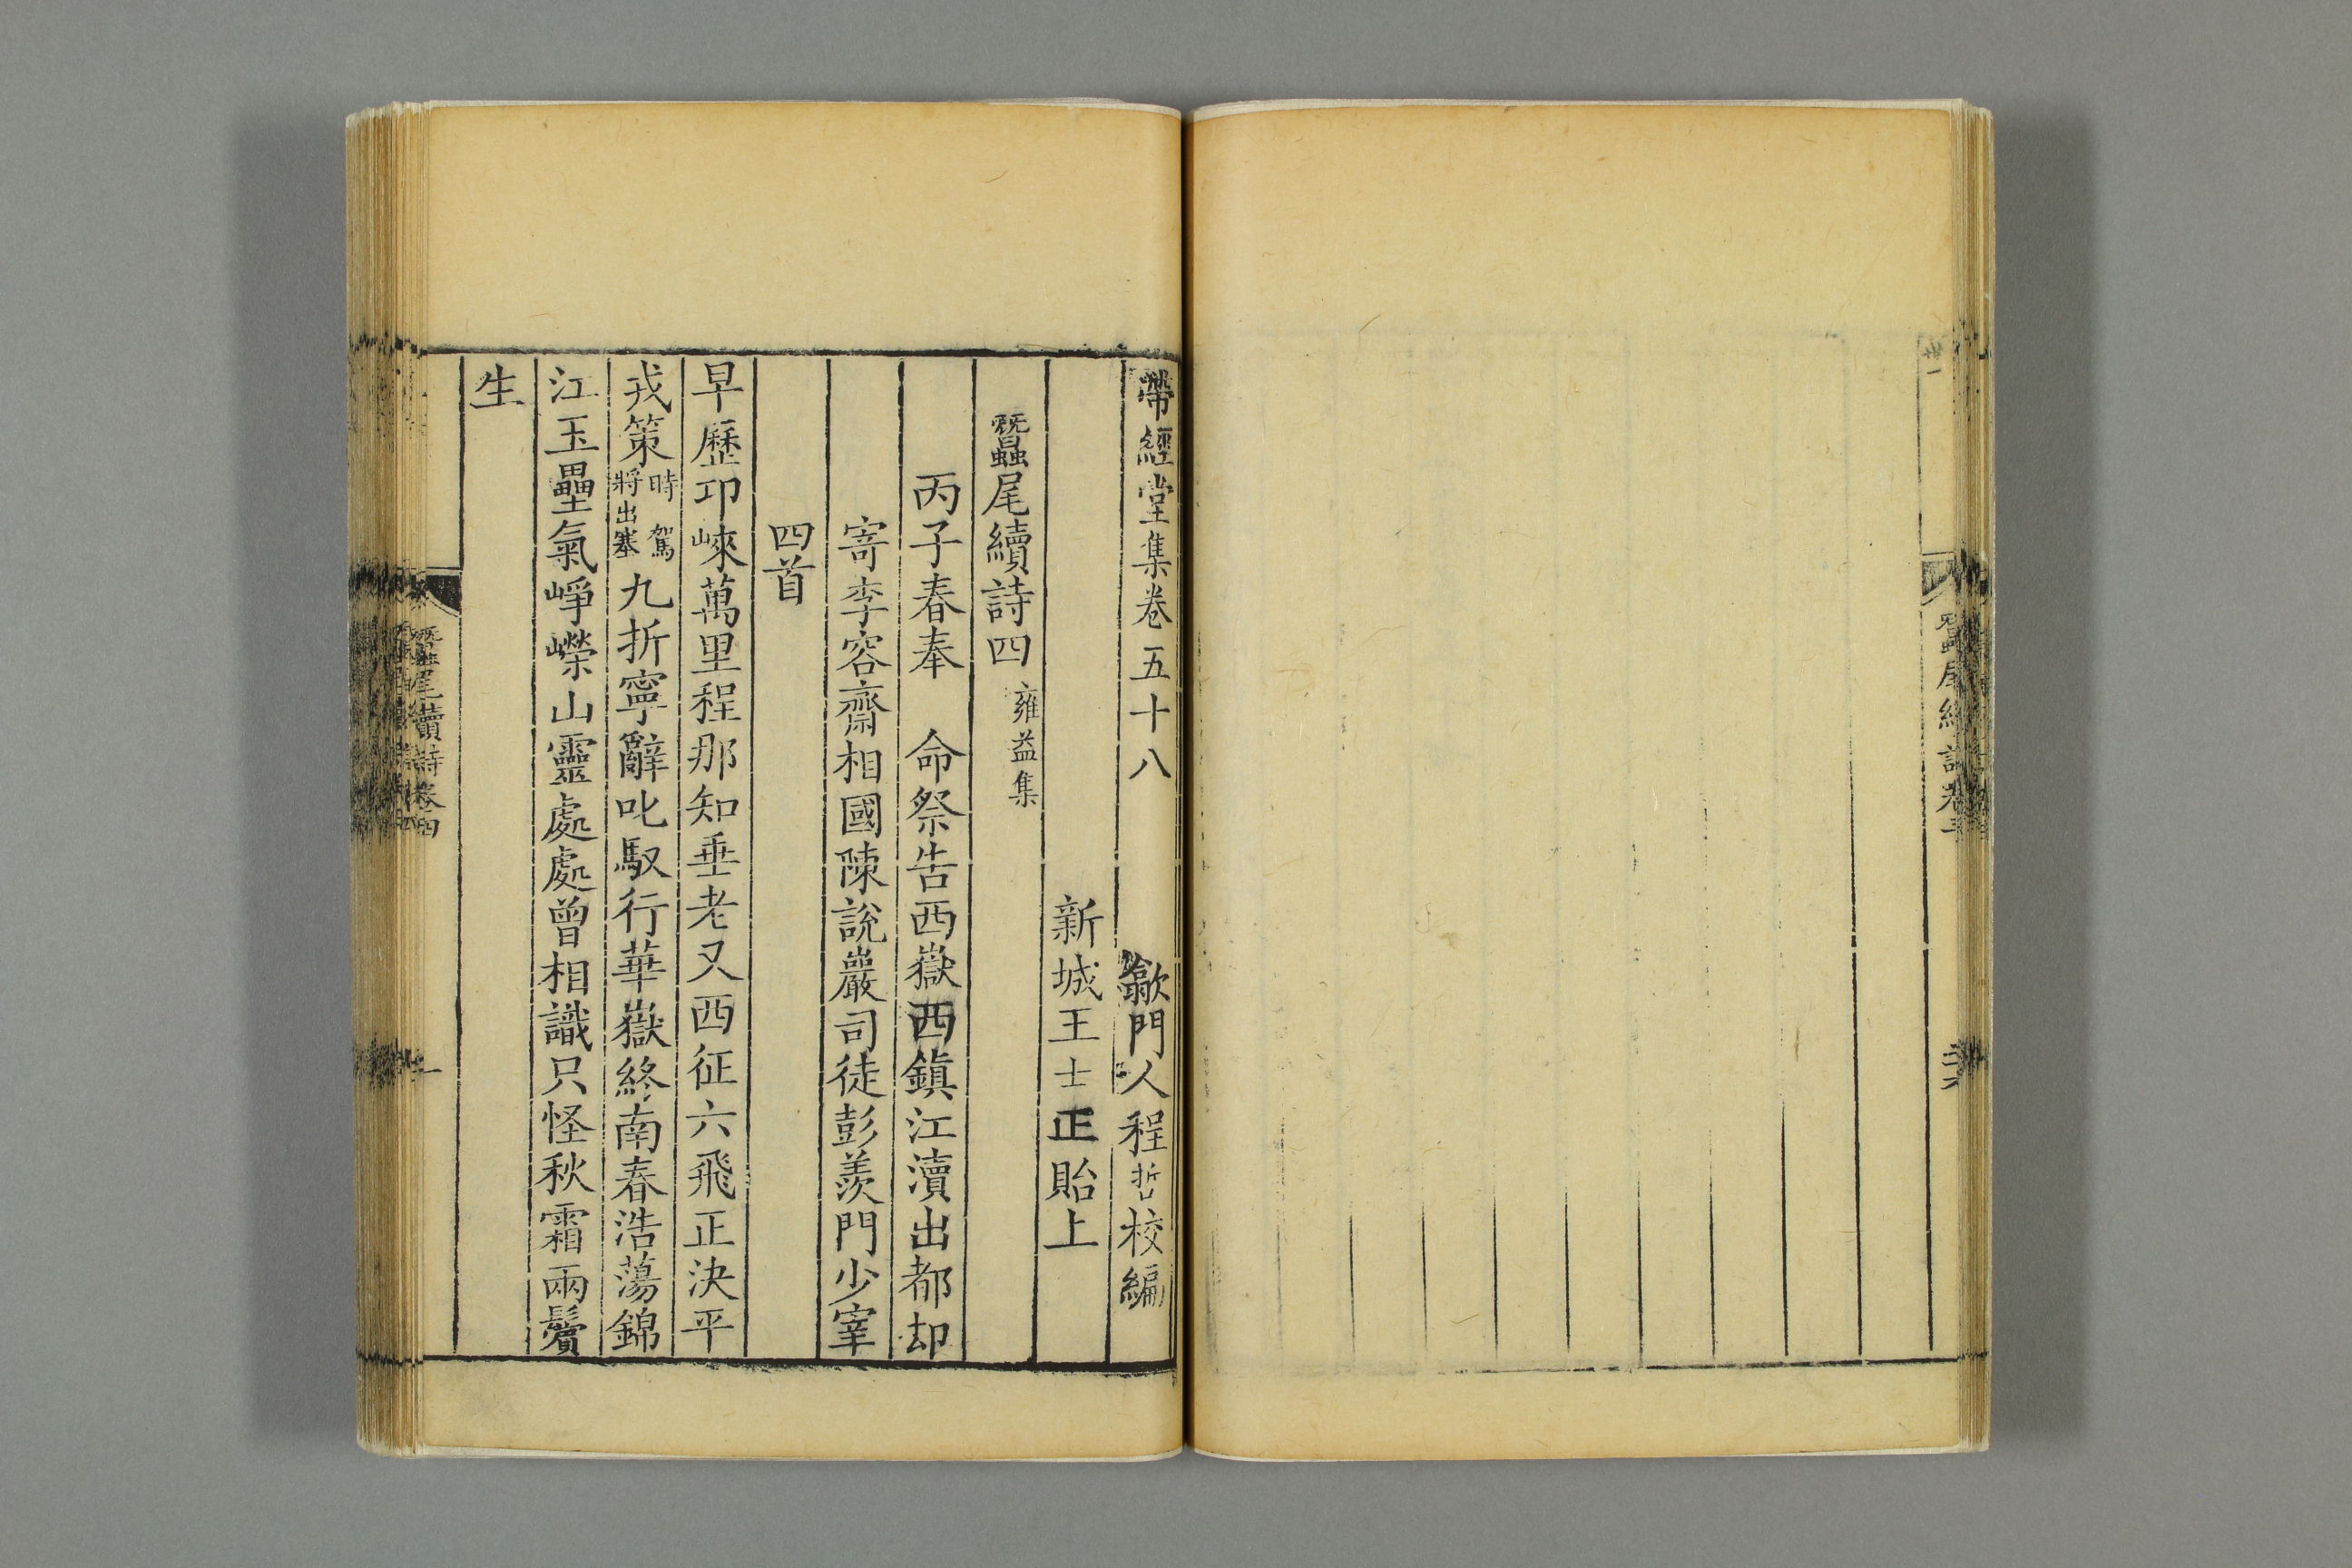 帶經堂集卷五十八　歙門人程哲校編
新城王士正貽上
蠶尾續詩四　雍益集
丙子春奉　命祭告西嶽西鎮江瀆出都却
寄李容齋相國陳說巖司徒彭羨門少宰
四首
早歷卭崍萬里程那知垂老又西征六飛正決平
戎策時　駕將出塞九折寧辭叱馭行華嶽終南春浩蕩錦
江玉壘氣崢嶸山靈處處曾相識只怪秋霜兩鬢
生
蠶尾續詩卷四
一